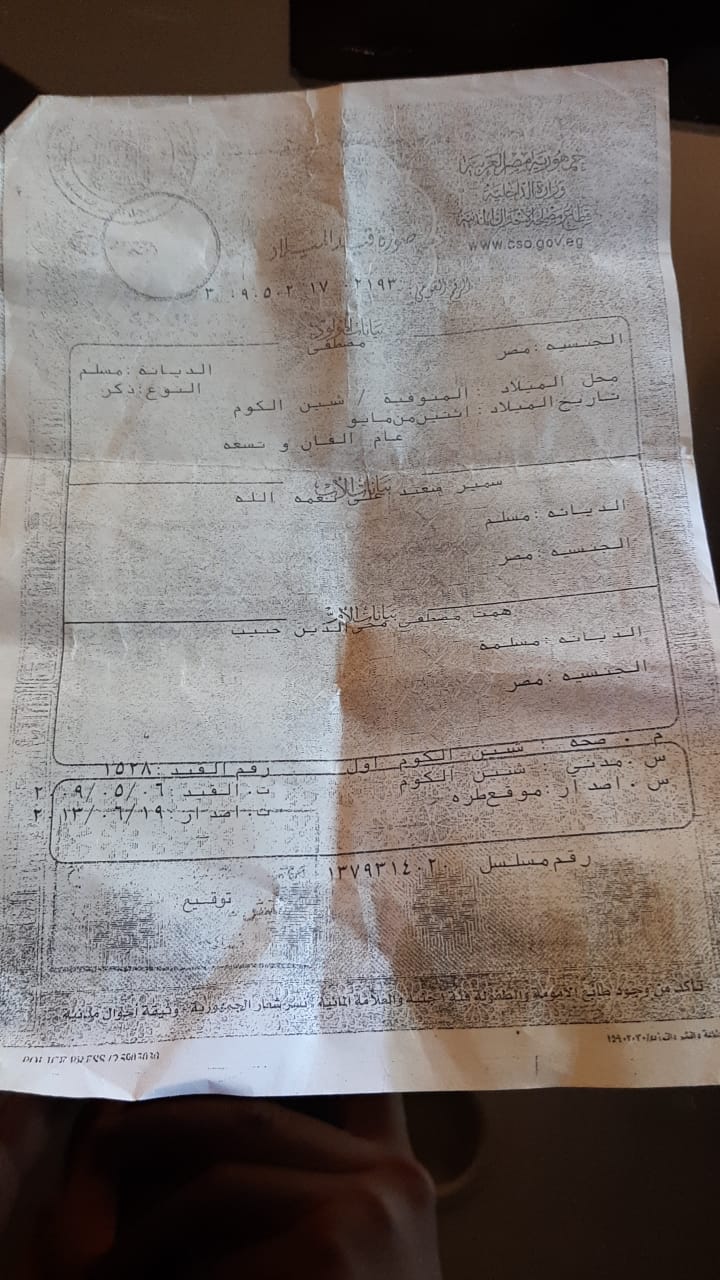 جمهورية مصر العربية
وزارة الداخلية
قطاع مصلحة الأحوال المدنية
www.cso.gov.eg
صورة قيد الميلاد
الرقم القومى
بيانات المولود
مصطفى
الجنسيه : مصر
الديانه : مسلم
النوع : ذكر
محل الميلاد : المنوفيه / شبين الكوم
تاريخ الميلاد : اثنين من مايو
عام الفان و تسعه
بيانات الأب
سمير سعيد على نعمه الله
الديانه : مسلم
الجنسيه : مصر
بيانات الأم
همت مصطفى الدين حبيب
الديانه : مسلمه
الجنسيه : مصر
م . صحه : شبين الكوم اول
رقم القيد : ١٥٢٨
س . مدنى : شبين الكوم
ت . القيد : ٠٦/٠٥/٢٠٠٩
س . اصدار : موقع طره
ت . اصدار : ١٩/٠٦/٢٠١٣
رقم مسلسل
توقيع
تأكد من وجود طابع الأمومة والطفولة فئة جنيه والعلامة المائية نسر شعار الجمهورية - وثيقة أحوال مدنية
POLICE PRESS